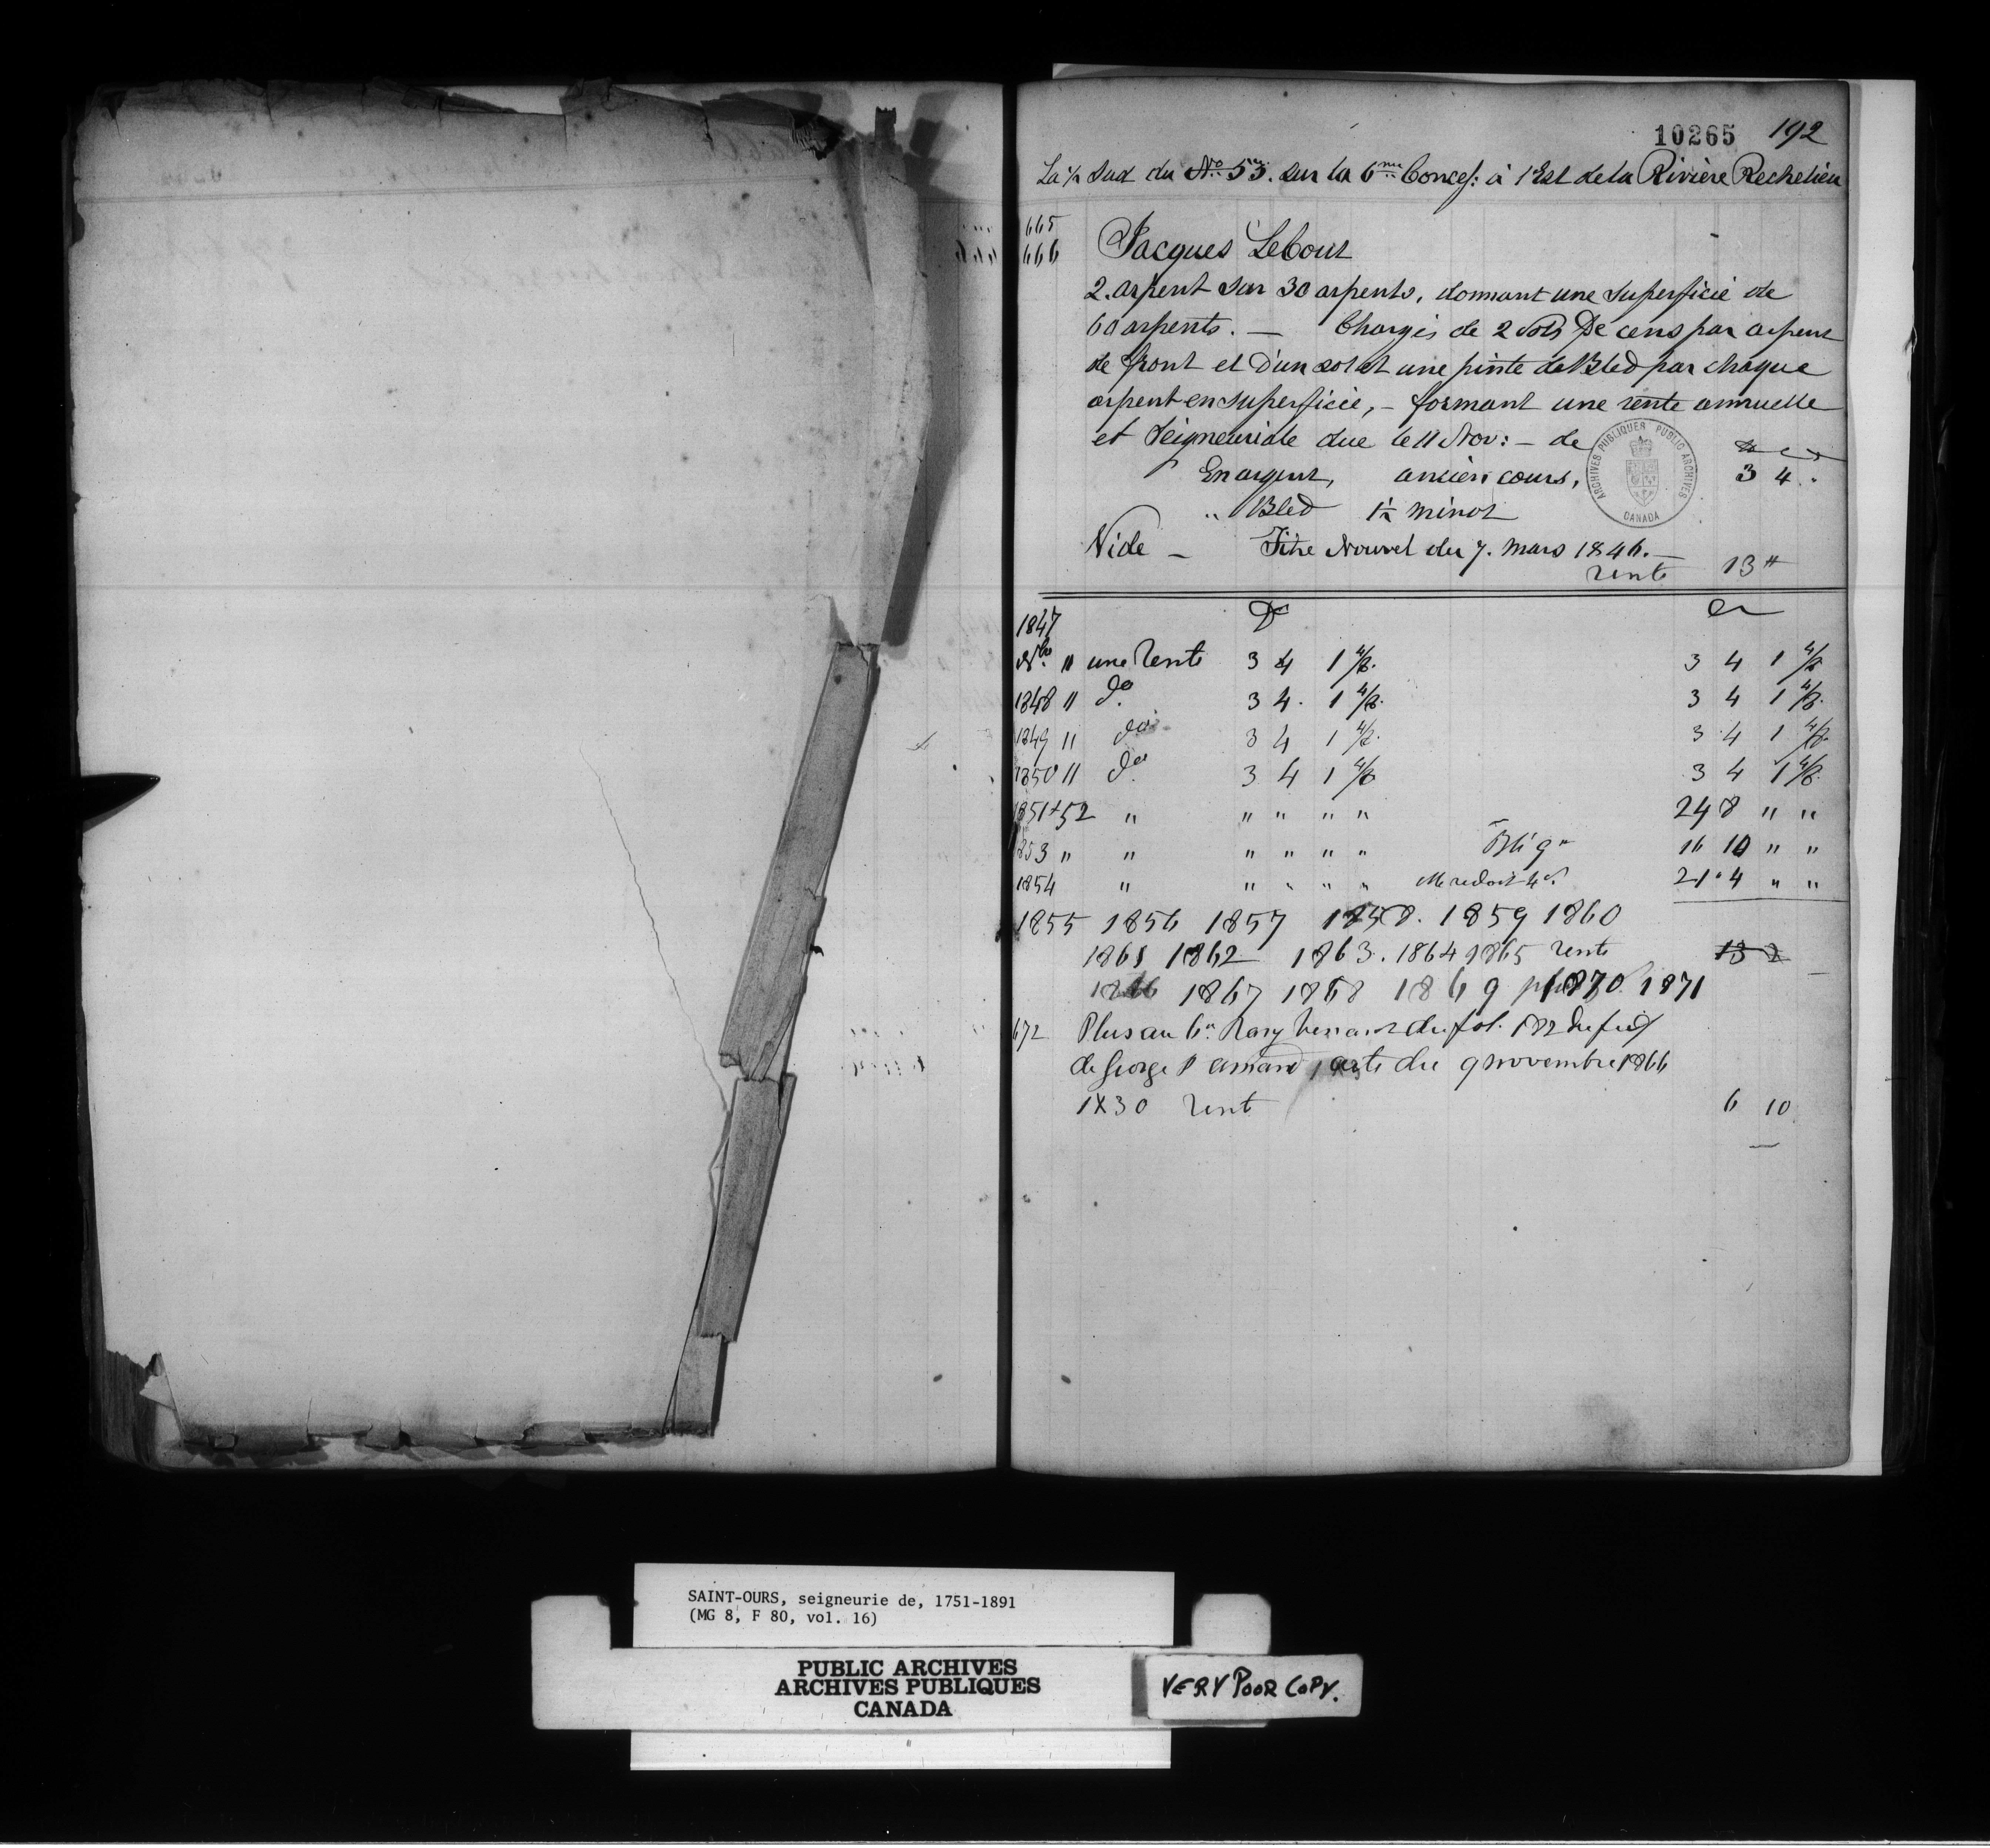 10265 192
La ½ Sud du No. 53. sur la 6me Concess: à l'Est de la Rivière Rechelieu
665
666 Jacques Lebout
2. arpent sur 30 arpents, donnant une Superficie de
60 arpents. — Chargés de 2 Sols De cens par arpent
de front et D'un sol et une pinte de Bled par chaque
arpent en superficie, - formant une rente annuelle
et Seigneuriale due le 11 Nov: - de
En argent, ancien cours, 3 4 .
" Bled 1½ minot
Vide — Titre Nouvel du 7. Mars 1846. —
rente 13 #
ARCHIVES PUBLIQUES PUBLIC ARCHIVES
CANADA
1847 Dr Cr
Nbre 11 une Rente 3 4 1 3 4 1
1848 11 do 3 4 . 1 3 4 1
1849 11 do 3 4 1 3 4 1
1850 11 do 3 4 1 3 4 1
1851+52 " " " " " 24 8 " "
1853 " " " " " " 16 10 " "
1854 " " " " " 21 " 4 " "
1855 1856 1857 1858. 1859 1860
1861 1862 1863. 1864 1865 rente 13 2
1866 1867 1868 1869 1870. 1871
672 Plus au 6e Rang du fol. 182
de George acte du 9 novembre 1866
1X30 rent 6 10
SAINT-OURS, seigneurie de, 1751-1891
(MG 8, F 80, vol. 16)
PUBLIC ARCHIVES
ARCHIVES PUBLIQUES
CANADA
VERY POOR COPY.